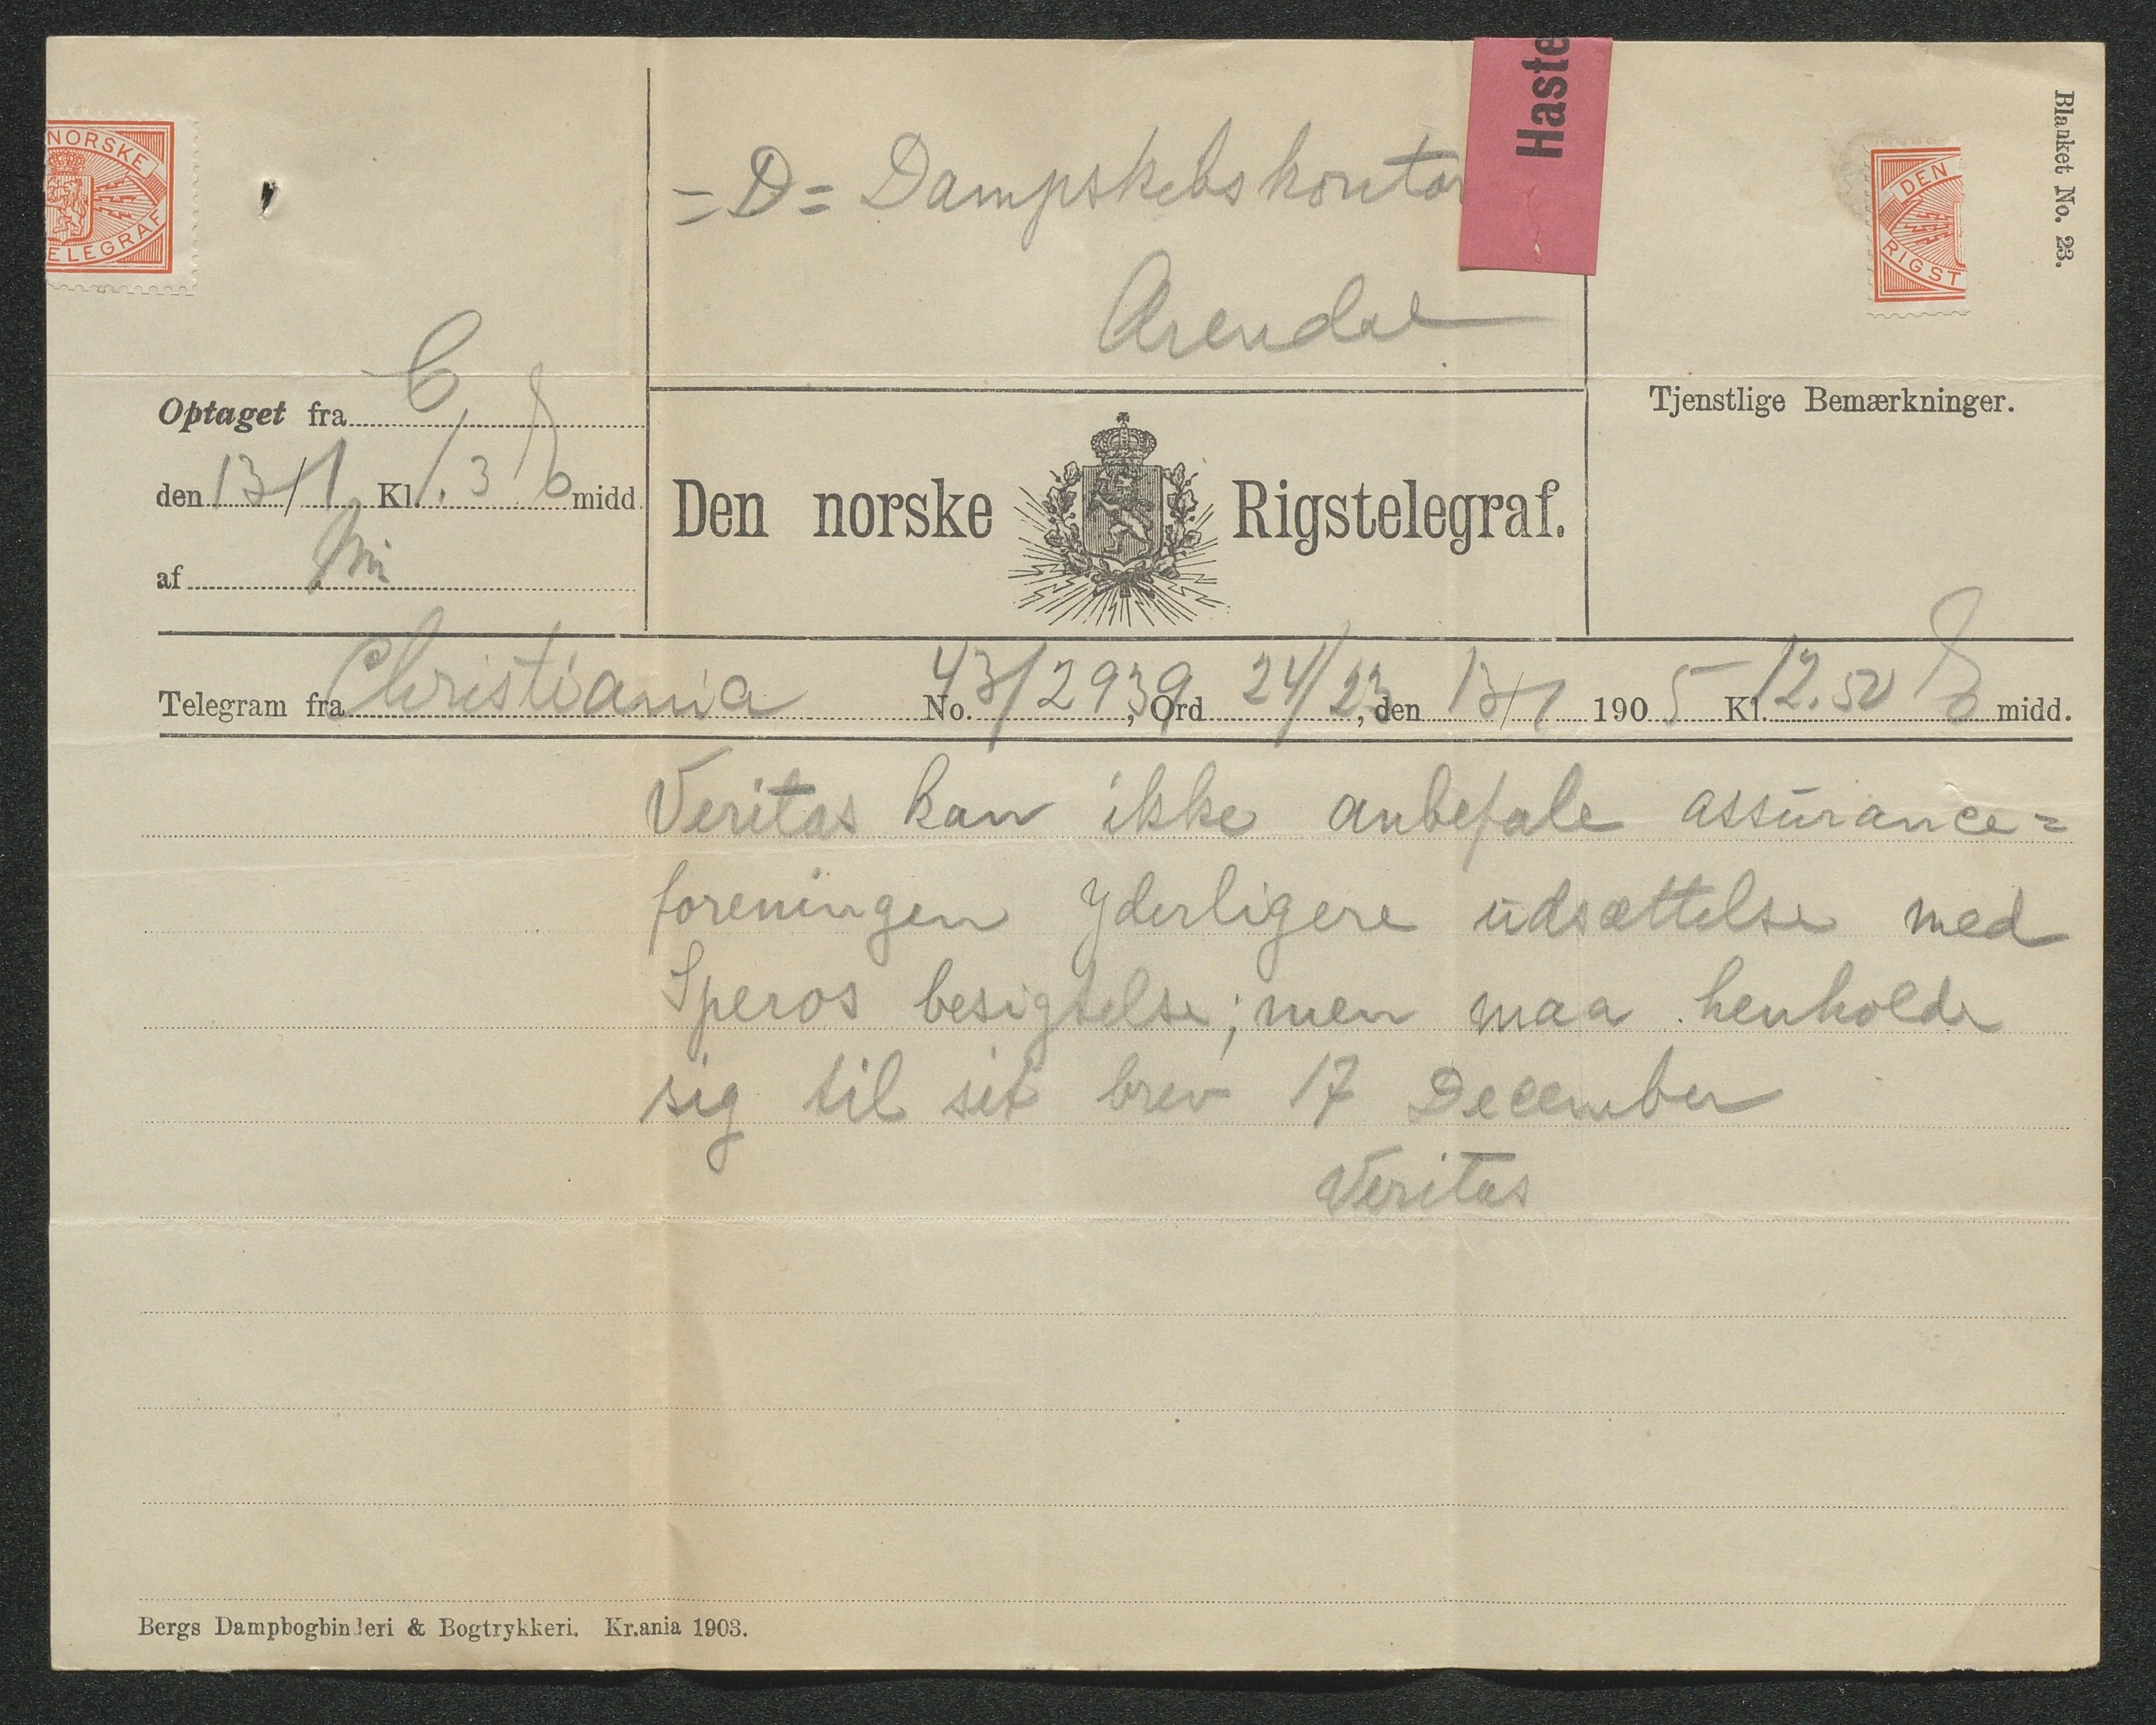 Blanket No. 23.
NORSKE
ELEGRAF
DEN
RIGST
Haste
=D= Dampskibskontor
Arendal
Optaget fra C
den 13/1 Kl. 1.3 midd.
af
Den norske Rigstelegraf.
Tjenstlige Bemærkninger.
Telegram fra Christiania No. 43/2939, Ord 24/23, den 13/1 1905 Kl. 12.50 midd.
Veritas kan ikke anbefale assurance=
foreningen Yderligere udsættelse med
Speros besigtelse; men maa henholde
sig til sit brev 17 December
Veritas
Bergs Dampbogbinderi & Bogtrykkeri. Kr.ania 1903.